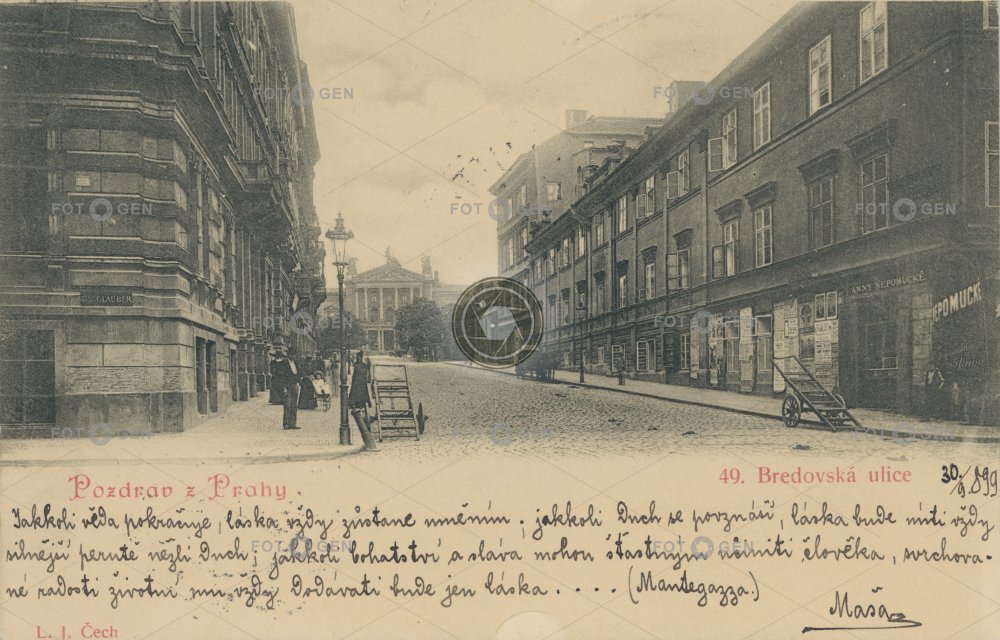 GLAUBER
ANNY NEPOMUCKÉ
EPOMUCK
Pozdrav z Prahy
49. Bredovská ulice
30/9 899
Jakkoli věda pokračuje, láska vždy zůstane uměním; jakkoli Duch se povznáší, láska bude míti vždy
silnější perutě nežli Duch; jakkoli bohatství a sláva mohou šťastným učiniti člověka, svrchova-
né radosti životní mu vždy Dodávati bude jen láska..... (Mantegazza.)
Máša
L. J. Čech
FOTOGEN